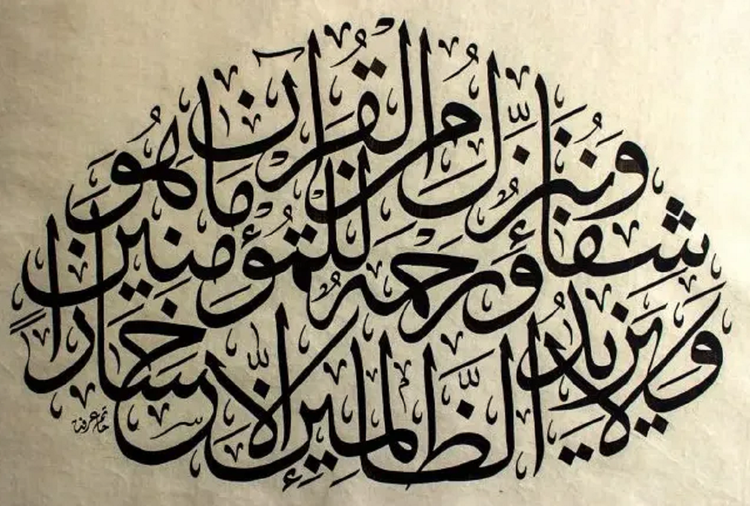 وَنُنَزِّلُ مِنَ الْقُرْآنِ مَا هُوَ
شِفَاءٌ وَرَحْمَةٌ لِلْمُؤْمِنِينَ
وَلَا يَزِيدُ الظَّالِمِينَ إِلَّا خَسَارًا